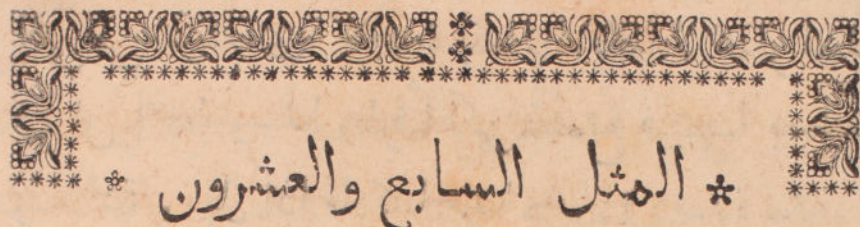 المثل السابع والعشرون